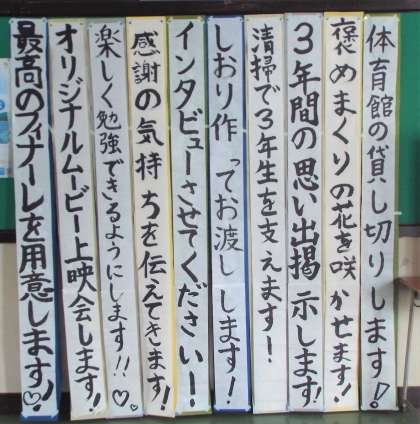 体育館の貸し切りします!
褒めまくりの花を咲かせます!
3年間の思い出掲示します!
清掃で3年生を支えます!
しおり作ってお渡しします!
インタビューさせてください!
感謝の気持ちを伝えてきます!!
楽しく勉強できるようにします!!♡♡
オリジナルムービー上映会します!
最高のフィナーレを用意します!♡